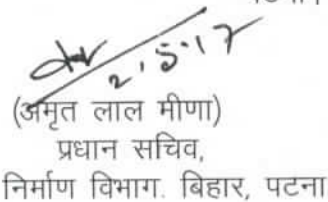 2.5.17
(अमृत लाल मीणा)
प्रधान सचिव,
निर्माण विभाग. बिहार, पटना